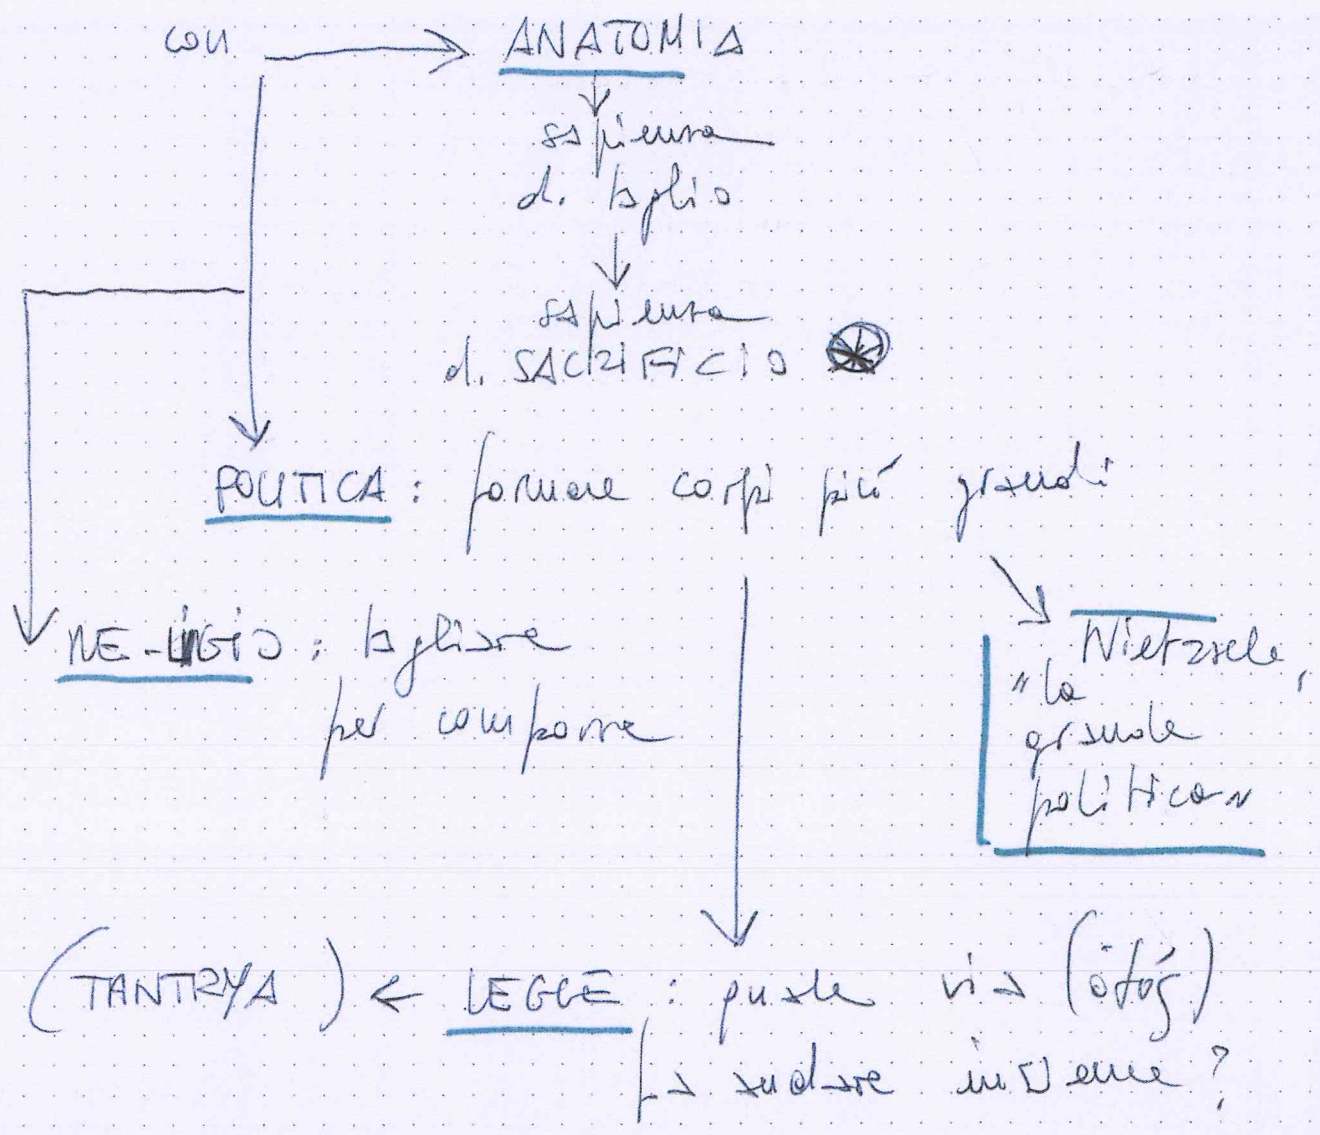 con
ANATOMIA
sapienza
d. taglio
sapienza
d. SACRIFICIO
POLITICA : formare corpi più grandi
RE-LIGIO : tagliare
per comporre
Nietzsche,
"la
grande
politica"
(TANTRYA) ← LEGGE : quale via (ὁδός)
fa andare insieme ?